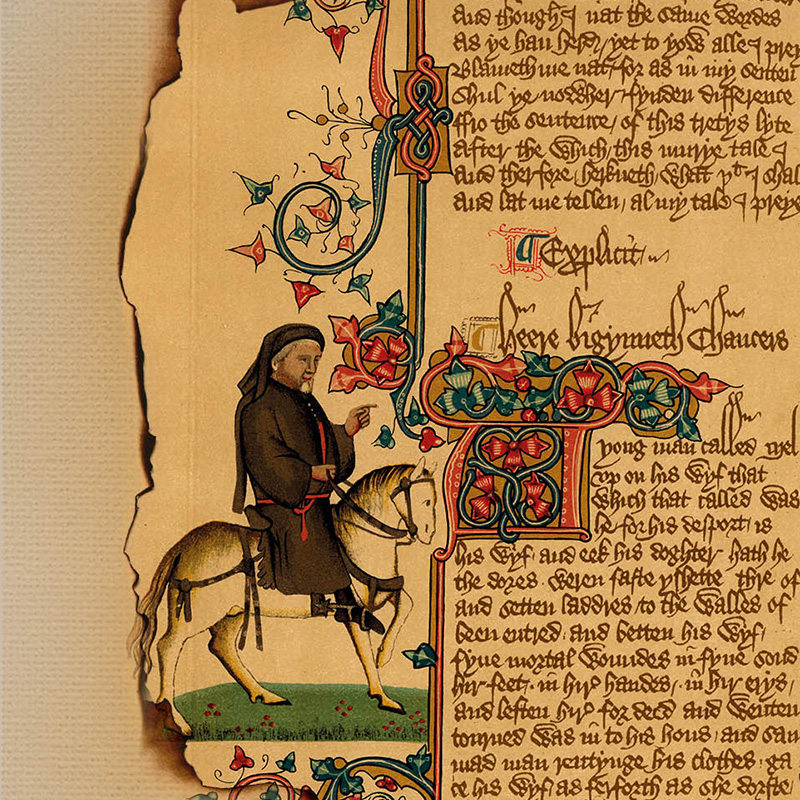 And though I nat the same wordes
as ye han herd / yet to yow alle I prey
Blameth me nat / for as in my senten
Shul ye nowher fynden difference
ffro the sentence / of this tretys lyte
After the which / this murye tale I
And therfore / herkneth / what yt I shal
And lat me tellen / al my tale I preye
Explicit
Heere bigynneth Chaucers
yong man called Mel
vp on his wyf that
which that called was
he for his desport / is
his wyf / and eek his doghter hath he
the dores weren faste yshette thre of
and setten laddres to the walles of
been entred / and betten his wyf /
fyue mortal woundes in fyue sond
hir feet / in hir handes / in hir erys /
and leften hir for deed and wenten
tourned was in to his hous / and sau
mad man rentynge his clothes ga
te his wyf / as ferforth as she dorste /